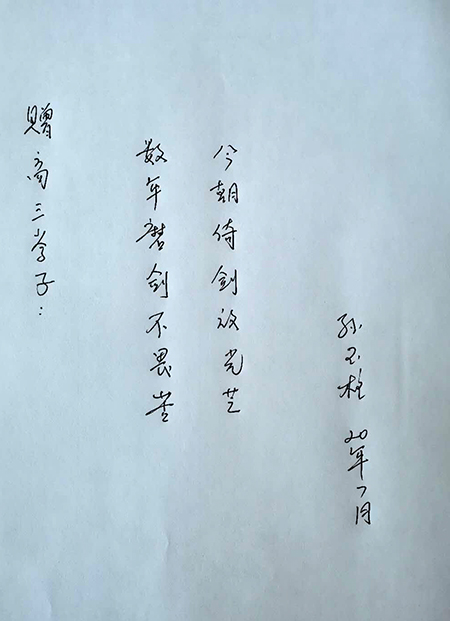 赠高三学子:
数年磨剑不畏苦
今朝倚剑放光芒
孙玉柱 20年7月